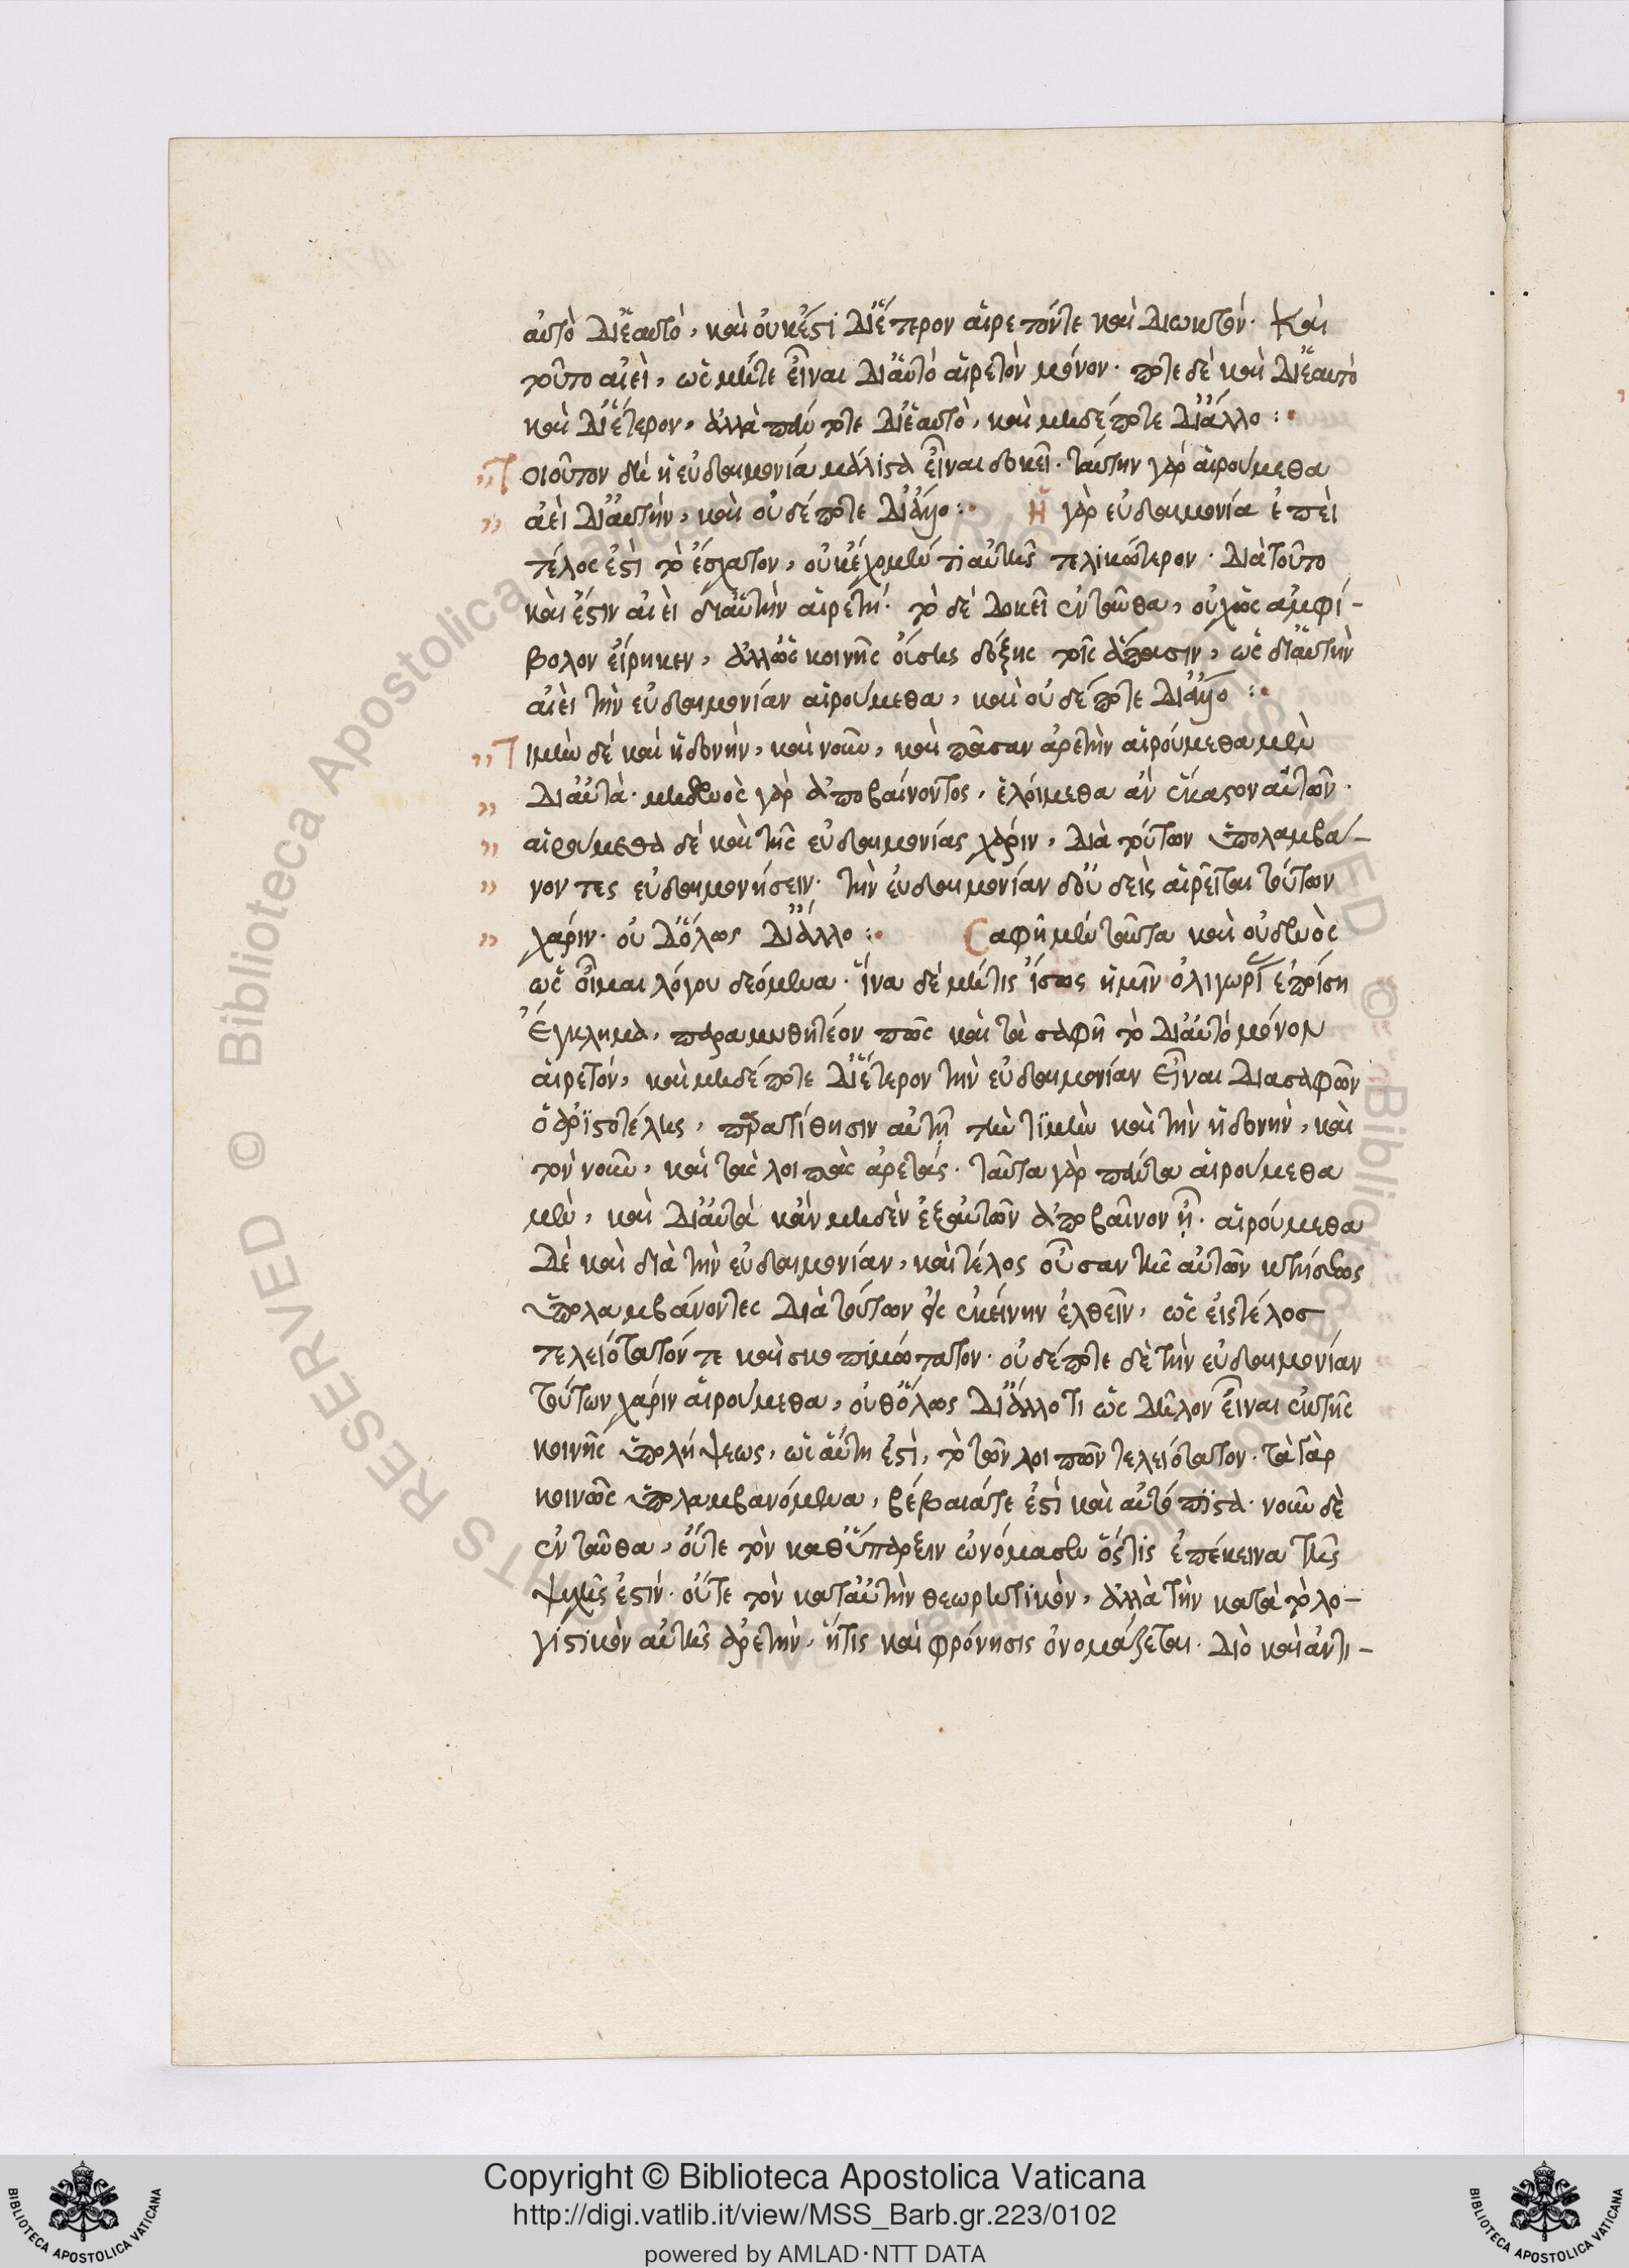 αὐτὸ δι' ἑαυτό, καὶ οὐκ ἔστι δι' ἕτερον αἱρετόν τε καὶ διωκτόν. Καὶ
τοῦτο αἰεὶ, ὡς μήτε εἶναι δι' αὑτὸ αἱρετὸν μόνον. ποτὲ δὲ καὶ δι' ἑαυτὸ
καὶ δι' ἕτερον, ἀλλὰ πάντοτε δι' ἑαυτὸ, καὶ μηδέποτε δι' ἄλλο:
Τοιοῦτον δὴ ἡ εὐδαιμονία μάλιστα εἶναι δοκεῖ. ταύτην γὰρ αἱρούμεθα
ἀεὶ δι' αὑτὴν, καὶ οὐδέποτε δι' ἄλλο: Ἡ γὰρ εὐδαιμονία ἐπεὶ
τέλος ἐστὶ τὸ ἔσχατον, οὐκ ἔχομέν τι αὐτῆς τελικώτερον. διὰ τοῦτο
καὶ ἔστιν αἰεὶ δι' αὑτὴν αἱρετή. τὸ δὲ δοκεῖ ἐνταῦθα, οὐχ ὡς ἀμφί-
βολον εἴρηκεν, ἀλλ' ὡς κοινῆς οὔσης δόξης τοῖς ἅπασιν, ὡς δι' αὑτὴν
αἰεὶ τὴν εὐδαιμονίαν αἱρούμεθα, καὶ οὐδέποτε δι' ἄλλο:
Τιμὴν δὲ καὶ ἡδονὴν, καὶ νοῦν, καὶ πᾶσαν ἀρετὴν αἱρούμεθα μὲν
δι' αὐτά. μηδενὸς γὰρ ἀποβαίνοντος, ἑλοίμεθα ἂν ἕκαστον αὐτῶν.
αἱρούμεθα δὲ καὶ τῆς εὐδαιμονίας χάριν, διὰ τούτων ὑπολαμβά-
νοντες εὐδαιμονήσειν. τὴν εὐδαιμονίαν δ' οὐδεὶς αἱρεῖται τούτων
χάριν. οὐδ' ὅλως δι' ἄλλο: Σαφῆ μὲν ταῦτα καὶ οὐδενὸς
ὡς οἶμαι λόγου δεόμενα. ἵνα δὲ μή τις ἴσως ἡμῖν ὀλιγωρί ἐποίση
ἔγκλημα, παραμυθητέον πως καὶ τὰ σαφῆ τὸ δι' αὑτὸ μόνον
αἱρετόν, καὶ μηδέποτε δι' ἕτερον τὴν εὐδαιμονίαν εἶναι διασαφῶν
ὁ ἀριστοτέλης, παρατίθησιν αὐτῇ τὴν τιμὴν καὶ τὴν ἡδονὴν, καὶ
τὸν νοῦν, καὶ τὰς λοιπὰς ἀρετάς. ταῦτα γὰρ πάντα αἱρούμεθα
μὲν, καὶ δι' αὐτὰ κἂν μηδὲν ἐξ αὐτῶν ἀποβαῖνον ᾖ. αἱρούμεθα
δὲ καὶ διὰ τὴν εὐδαιμονίαν, καὶ τέλος οὖσαν τῆς αὐτῶν κτήσεως
ὑπολαμβάνοντες διὰ τούτων εἰς ἐκείνην ἐλθεῖν, ὡς εἰς τέλος
τελειότατόν τε καὶ σκοπιμώτατον. οὐδέποτε δὲ τὴν εὐδαιμονίαν
τούτων χάριν αἱρούμεθα, οὐθ' ὅλως δι' ἄλλο τι ὡς δῆλον εἶναι ἐκ τῆς
κοινῆς ὑπολήψεως, ὡς αὕτη ἐστὶ, τὸ τῶν λοιπῶν τελειότατον. τὰ γὰρ
κοινῶς ὑπολαμβανόμενα, βέβαιά τε ἐστὶ καὶ αὐτόπιστα. νοῦν δὲ
ἐνταῦθα, οὔτε τὸν καθ' ὕπαρξιν ὠνόμασεν ὅστις ἐπέκεινα τῆς
ψυχῆς ἐστίν. οὔτε τὸν κατ' αὐτὴν θεωρητικὸν, ἀλλὰ τὴν κατὰ τὸ λο-
γιστικὸν αὐτῆς ἀρετὴν, ἥτις καὶ φρόνησις ὀνομάζεται. διὸ καὶ ἀντι-
Copyright © Biblioteca Apostolica Vaticana
http://digi.vatlib.it/view/MSS_Barb.gr.223/0102
powered by AMLAD·NTT DATA